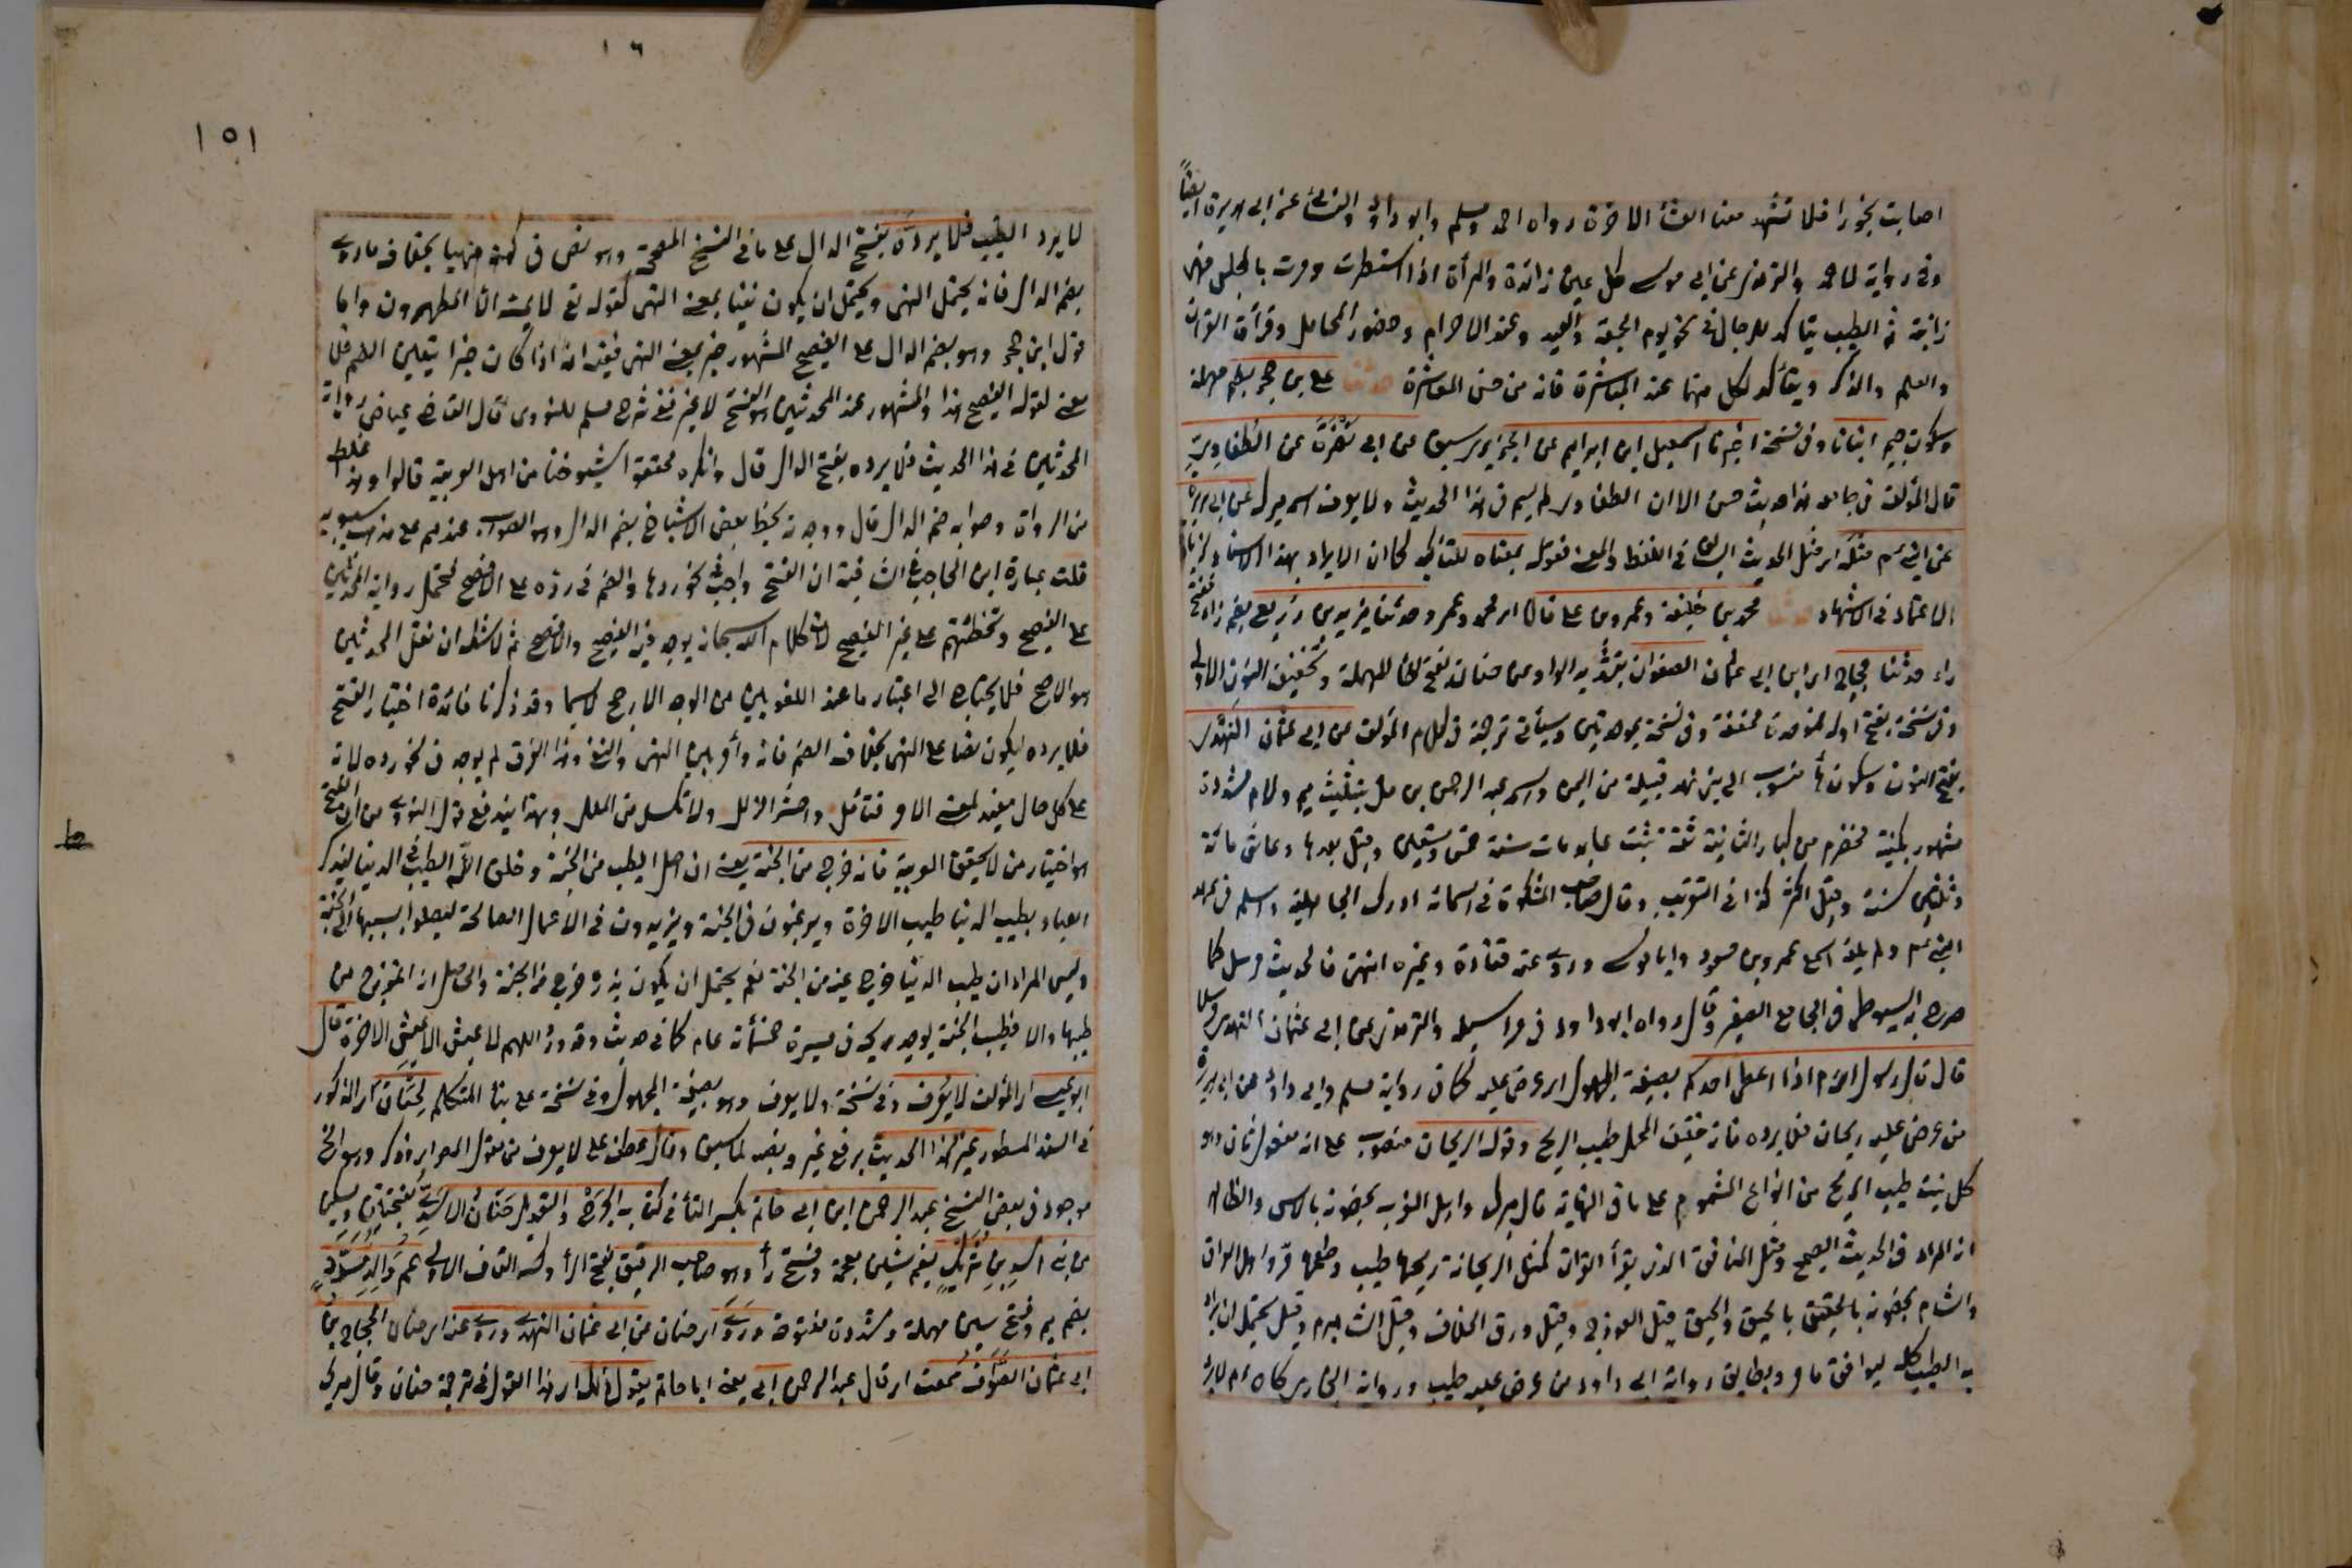 اصابت بخورا فلا تشهد معنا العشاء الاخرة رواه احمد ومسلم وابو داود والنسائي عن ابي هريرة ايضاً
وفي رواية لاحمد والترمذي عن ابي موسى كل عين زانية والمرأة اذا استعطرت ومرت بالمجلس فهي
زانية ثم الطيب يتاكد للرجال في نحو يوم الجمعة والعيد وعند الاحرام وحضور المحافل وقرأة القرآن
والعلم والذكر ويتأكد لكل منهما عند المباشرة فانه من حسن المعاشرة حدثنا علي بن حجر بضم مهملة
وسكون جيم انبانا وفي نسخة اخبرنا اسمعيل ابن ابراهيم عن الجريري عن ابي نضرة عن الطفاوي
قال المؤلف في جامعه هذا حديث حسن الا ان الطفاوي لم يسم في هذا الحديث ولا يعرف اسمه عن ابي هريرة
عن النبي صلعم مثله اي مثل الحديث السابق في اللفظ والمعنى فقوله بمعناه للتأكيد
الاعتماد في الاشهاد حدثنا محمد بن خليفة وعمرو بن علي قالا اي محمد وعمرو حدثنا يزيد بن زريع بضم زاء ففتح
راء حدثنا حجاج اي ابن ابي عثمان الصواف بتشديد الواو عن حنان بفتح الحاء المهملة وتخفيف النون الاولى
وفي نسخة بفتح اوله فموحدة مخففة وفي نسخة بموحدتين وسيأتي ترجمته في كلام المؤلف عن ابي عثمان النهدي
بفتح النون وسكون هاء منسوب الى بني نهد قبيلة من اليمن واسمه عبد الرحمن بن مل بتثليث ميم ولام مشددة
مشهور بكنيته مخضرم من كبار الثانية ثقة ثبت عابد مات سنة خمس وتسعين وقيل بعدها وعاش مائة
وثلثين سنة وقيل اكثر كذا في التقريب وقال صاحب المشكوة في اسمائه ادرك الجاهلية واسلم في عهد
النبي صلعم ولم يلقه سمع عمر وابن مسعود وابا موسى وروى عنه قتادة وغيره انتهى فالحديث مرسل كما
صرح به السيوطي في الجامع الصغير وقال رواه ابو داود في مراسيله والترمذي عن ابي عثمان النهدي مرسلا
قال قال رسول الله صلعم اذا اعطي احدكم بصيغة المجهول اي عرض عليه كما في رواية مسلم وابي داود عن ابي هريرة
من عرض عليه ريحان فلا يرده فانه خفيف المحمل طيب الريح وقوله الريحان منصوب على انه مفعول ثان وهو
كل نبت طيب الريح من انواع المشموم على ما في النهاية قال ميرك واهل الغرب يخصونه بالآس والظاهر
ان المراد في الحديث الصحيح ومثل المنافق الذي يقرأ القرآن كمثل الريحانة ريحها طيب وطعمها مر واهل العراق
والشام يخصونه بالحبق والحبق قيل الفوذج وقيل ورق الخلاف وقيل الشاهسبرم وقيل يحتمل ان يراد
به الطيب كله ليوافق ما مر ويطابق رواية ابي داود من عرض عليه طيب ورواية البخاري كان صلعم لا يرد
١٥١
لا يرد الطيب فلا يرده بفتح الدال على ما في النسخ المصححة وهو نص في كونه نهيا بخلاف ما روى
بضم الدال فانه يحتمل النهي ويحتمل ان يكون نفيا بمعنى النهي كقوله تع لا يمسه الا المطهرون واما
قول ابن حجر وهو بضم الدال على الفصيح المشهور خبر بمعنى النهي فيفيد انه اذا كان خبرا يتعين الضم فلا
معنى لقوله الفصيح هذا والمشهور عند المحدثين هو الفتح لا غير ففي شرح مسلم للنووي قال القاضي عياض رواية
المحدثين في هذا الحديث فلا يرده بفتح الدال قال وانكره محققوا شيوخنا من اهل العربية قالوا وهذا غلط
من الرواة وصوابه ضم الدال قال ووجدته بخط بعض الاشياخ بضم الدال وهو الصواب عندهم على مذهب سيبويه
قلت عبارة ابن الحاجب في الشافية ان الفتح واجب في نحو ردها والضم في رده على الافصح فحمل رواية المحدثين
على الفصيح وتخطئتهم على غير الفصيح لان كلام الله سبحانه يوجد فيه الفصيح والافصح ثم لا شك ان نقل المحدثين
هو الاصح فلا يحتاج الى اعتبار ما عند اللغويين من الوجه الارجح لا سيما وقد ذكرنا فائدة اختيار الفتح
فلا يرده ليكون نصا على النهي بخلاف الضم فانه دائر بين النهي والنفي وهذا الفرق لم يوجد في نحو رده لانه
على كل حال مفيد لمعنى الامر فتامل واحذر الزلل ولا تكسل من الملل وبهذا يندفع قول النووي من ان الفتح
هو اختيار من لا يحقق العربية فانه خرج من الجنة يعني ان اصل الطيب من الجنة وخلق الله الطيب في الدنيا ليذكر
العباد بطيب الدنيا طيب الاخرة ويرغبون في الجنة ويزيدون في الاعمال الصالحة ليصلوا بسببها الى الجنة
وليس المراد ان طيب الدنيا خرج عينه من الجنة نعم يحتمل ان يكون بذره خرج من الجنة والحاصل انه انموذج من
طيبها والا فطيب الجنة يوجد ريحه من مسيرة خمسمائة عام كما في حديث وقد ورد اللهم لا عيش الا عيش الاخرة قال
ابو عيسى اي المؤلف لا يعرف وفي نسخة ولا يعرف وهو بصيغة المجهول وفي نسخة على بناء المتكلم لحنان اي المذكور
في السند المسطور غير هذا الحديث برفع غير ونصبه لما سبق وقال عطف على لا يعرف من مقول ابو عيسى
موجود في بعض النسخ عبد الرحمن ابن ابي حاتم بكسر التاء في كتاب الجرح والتعديل حنان الاسدي بفتحتين ويسكن
من بني اسد بن شريك بضم شين معجمة وفتح راء وهو صاحب الرقيق بفتح الراء وكسر القاف الاولى عم والد مسدد
بضم ميم وفتح سين مهملة وتشديد دال مفتوحة وروى اي حنان عن ابي عثمان النهدي وروى عنه اي حنان الحجاج بن
ابي عثمان الصواف سمعت اي قال عبد الرحمن ابي يعني ابا حاتم يقول ذلك اي هذا القول في ترجمة حنان وقال ميرك